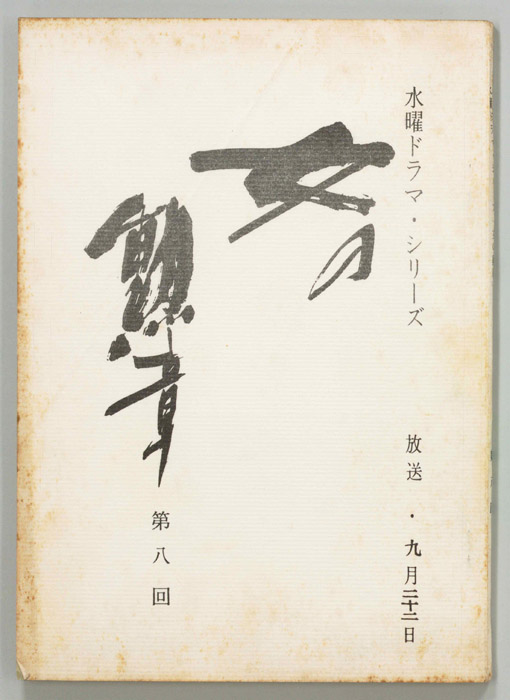 水曜ドラマ・シリーズ
放送・九月二十二日
女の
勲章
第八回